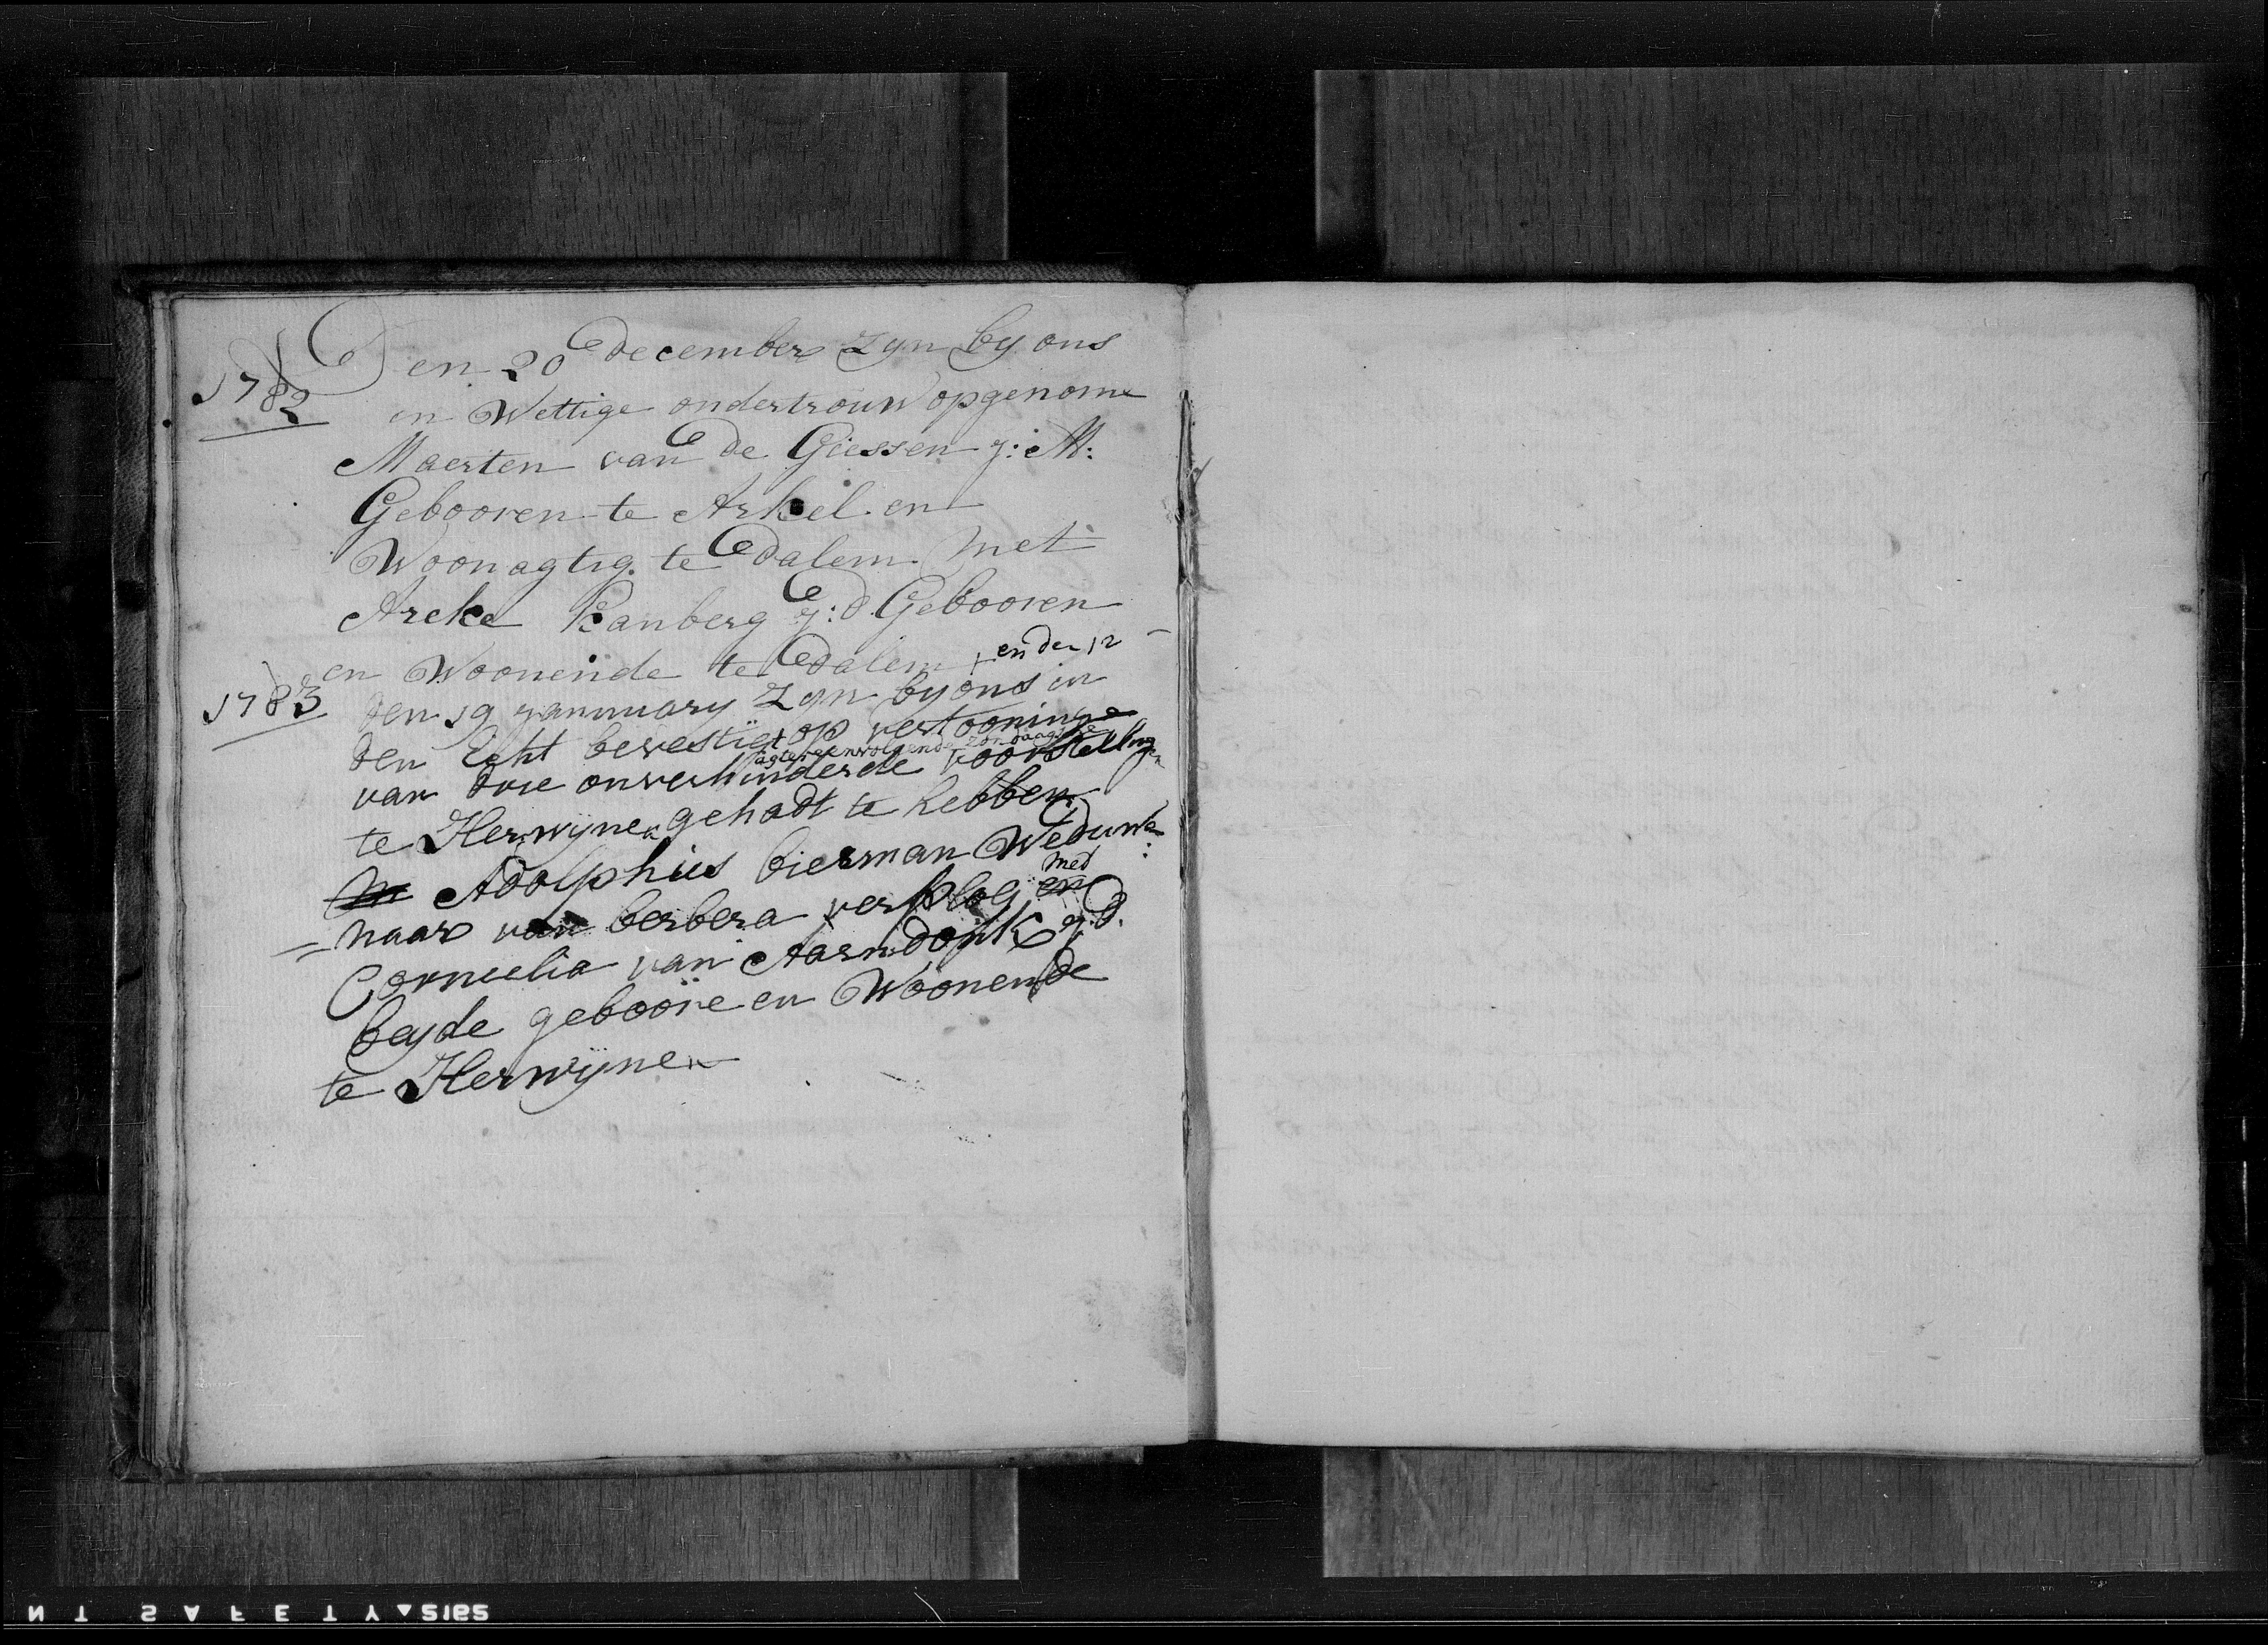 1782
Den 20 december zyn by ons
in Wettige ondertrouw opgenome
Maerten van de Giessen j:M:
Gebooren te Arkel en
Woonagtig te dalem met
Areke Kanberg j:d. Gebooren
en Woonende te dalem
en den 12
1783
den 19 jannuary zyn by ons in
den Echt bevestigt op vertooninge
agtereenvolgende zondaagse
van drie onverhinderde voorstellingen
te Herwynen gehadt te hebben
Adolphus bierman Weduwe:
= naar van berbera verploeg en
med
Corneelia van Aarndonk j:d.
beyde geboore en Woonende
te Herwynen
N T S A F E T Y ▲ 5162